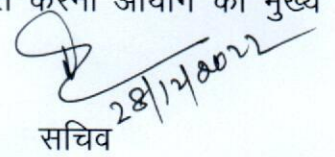 करना आयोग का मुख्य
28/12/2022
सचिव